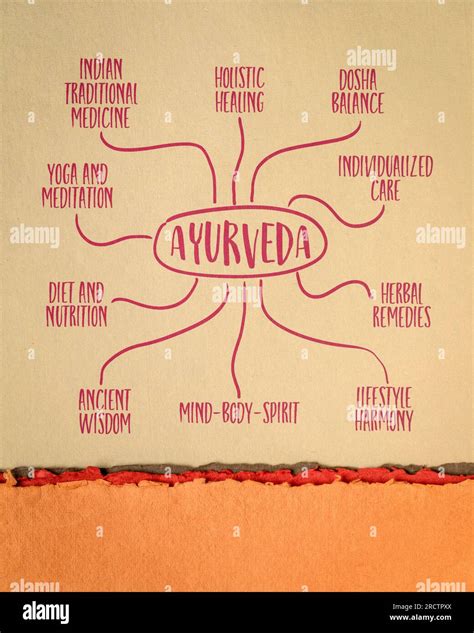 INDIAN
TRADITIONAL
MEDICINE
HOLISTIC
HEALING
DOSHA
BALANCE
YOGA AND
MEDITATION
INDIVIDUALIZED
CARE
AYURVEDA
DIET AND
NUTRITION
HERBAL
REMEDIES
ANCIENT
WISDOM
MIND-BODY-SPIRIT
LIFESTYLE
HARMONY
alamy
alamy
alamy
alamy
alamy
alamy
alamy
Image ID: 2RCTPXX
www.alamy.com